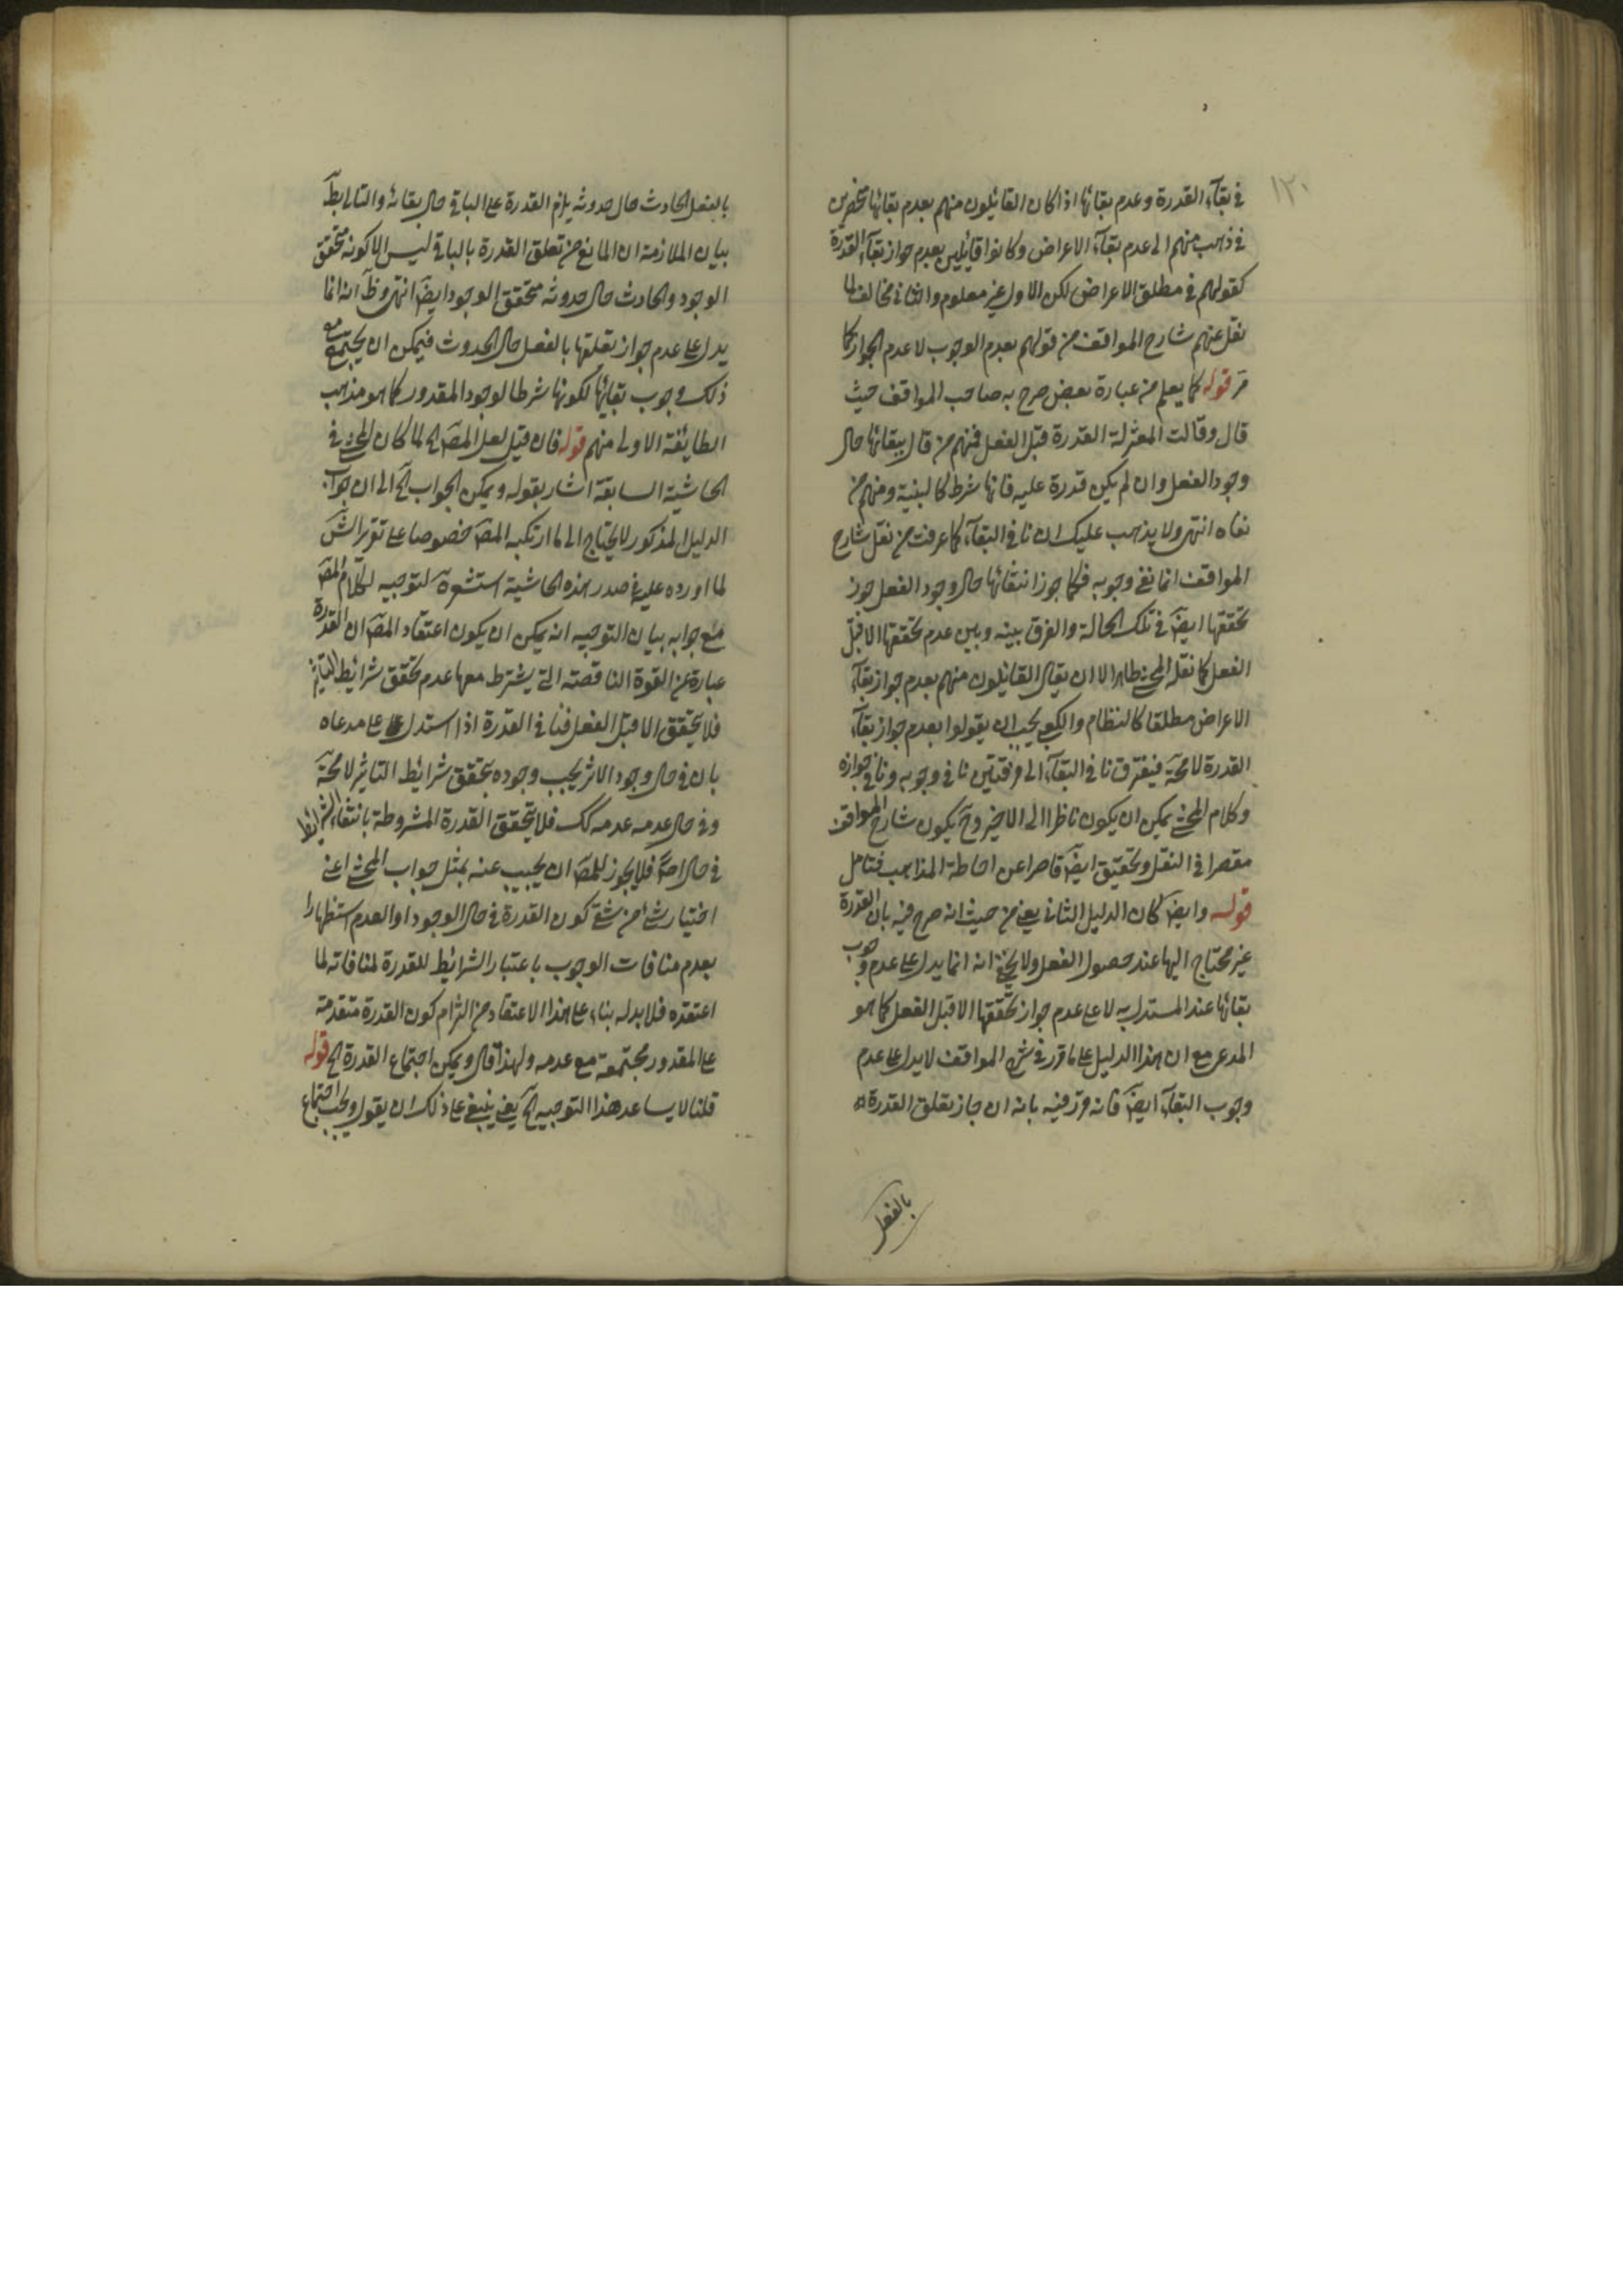 ١٢٠
في بقآء القدرة وعدم بقائها اذا كان القائيلون منهم بعدم بقائها منحصرين
في ذهب منهم الى عدم بقآء الاعراض وكانوا قايلين بعدم جواز بقآء القدرة
كقولهم في مطلق الاعراض لكن الاول غير معلوم والثاني مخالف لما
نقل عنهم شارح المواقف من قولهم بعدم الوجوب لا عدم الجواز كما
مرّ قوله كما يعلم من عبارة بعض صرح به صاحب المواقف حيث
قال وقالت المعتزلة القدرة قبل الفعل فمنهم من قال ببقائها حال
وجود الفعل وان لم يكن قدرة عليه فانها شرط كالبنية ومنهم من
نفاه انتهى ولا يذهب عليك ان نافي البقآء كما عرفت من نقل شارح
المواقف انما نفى وجوبه فكما جوز انتفائها حال وجود الفعل جوز
تحققها ايضً في تلك الحالة والفرق بينه وبين عدم تحققها الا قبل
الفعل كما نقله المحشي ظاهر الا ان يقال القائيلون منهم بعدم جواز بقآء
الاعراض مطلقا كالنظام والكعبي يجب ان يقولوا بعدم جواز بقآء
القدرة لا محة فيفترق نافي البقآء الى فرقتين نافي وجوبه ونافي جوازه
وكلام المحشي يمكن ان يكون ناظرا الى الاخير وح يكون شارح المواقف
مقصرا في النقل وتحقيق ايضً قاصرا عن احاطة المذاهب فتامل
قوله وايضً كان الدليل الثاني يعني من حيث انه صرح فيه بان القدرة
غير محتاج اليها عند حصول الفعل ولا يخفى انه انما يدل على عدم وجوب
بقائها عند المستدل به لا على عدم جواز تحققها الا قبل الفعل كما هو
المدعى مع ان هذا الدليل على ما قرر في شرح المواقف لا يدل على عدم
وجوب البقآء ايضً فانه قرر فيه بانه ان جاز تعلق القدرة
بالفعل
بالفعل الحادث حال حدوثه يلزم القدرة على الباقي حال بقائه والتالي بط
بيان الملازمة ان المانع من تعلق القدرة بالباقي ليس الا كونه متحقق
الوجود والحادث حال حدوثه متحقق الوجود ايضً انتهى وظ انه انما
يدل على عدم جواز تعلقها بالفعل حال الحدوث فيمكن ان يجتمع مع
ذلك وجوب بقائها لكونها شرطا لوجود المقدور كما هو مذهب
الطايفة الاولى منهم قوله فان قيل لعل المصً الخ لما كان المحشي في
الحاشية السابقة اشار بقوله ويمكن الجواب الخ الى ان جواب
الدليل المذكور لا يحتاج الى ما ارتكبه المصً خصوصا على تقرير الش
لما اورده عليه في صدر هذه الحاشية استشعر لتوجيه لكلام المصً
منع جوابه بيان التوجيه انه يمكن ان يكون اعتقاد المصً ان القدرة
عبارة عن القوة الناقصة التي يشترط معها عدم تحقق شرايط التاثير
فلا يتحقق الا قبل الفعل فنافي القدرة اذا استدل على مدعاه
بان في حال وجود الاثر يجب وجوده بتحقق شرايط التاثير لا محة
وفي حال عدمه عدمه كك فلا يتحقق القدرة المشروطة بانتفاء الشرايط
في حال اصلا فلا يجوز للمصً ان يجيب عنه بمثل جواب المحشي اعني
اختيار شئ من شقي كون القدرة في حال الوجود او العدم استظهارا
بعدم منافات الوجوب باعتبار الشرائط للقدرة لمنافاته لما
اعتقده فلا بد له بناء على هذا الاعتقاد من التزام كون القدرة متقدمة
على المقدور مجتمعة مع عدمه ولهذا قال ويمكن اجتماع القدرة الخ قوله
قلنا لا يساعد هذا التوجيه الخ يعني ينبغي على ذلك ان يقول ويجب اجتماع